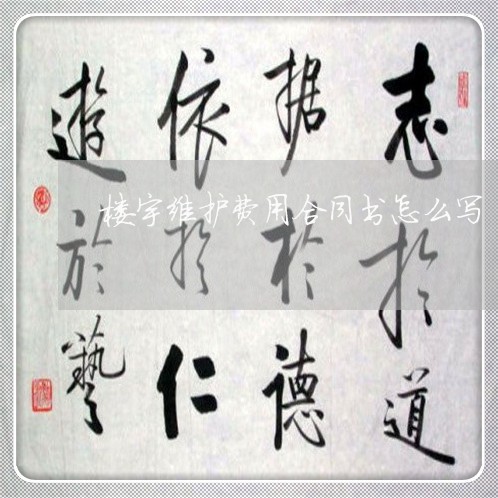 志於道
据於德
依於仁
遊於藝
楼宇维护费用合同书怎么写